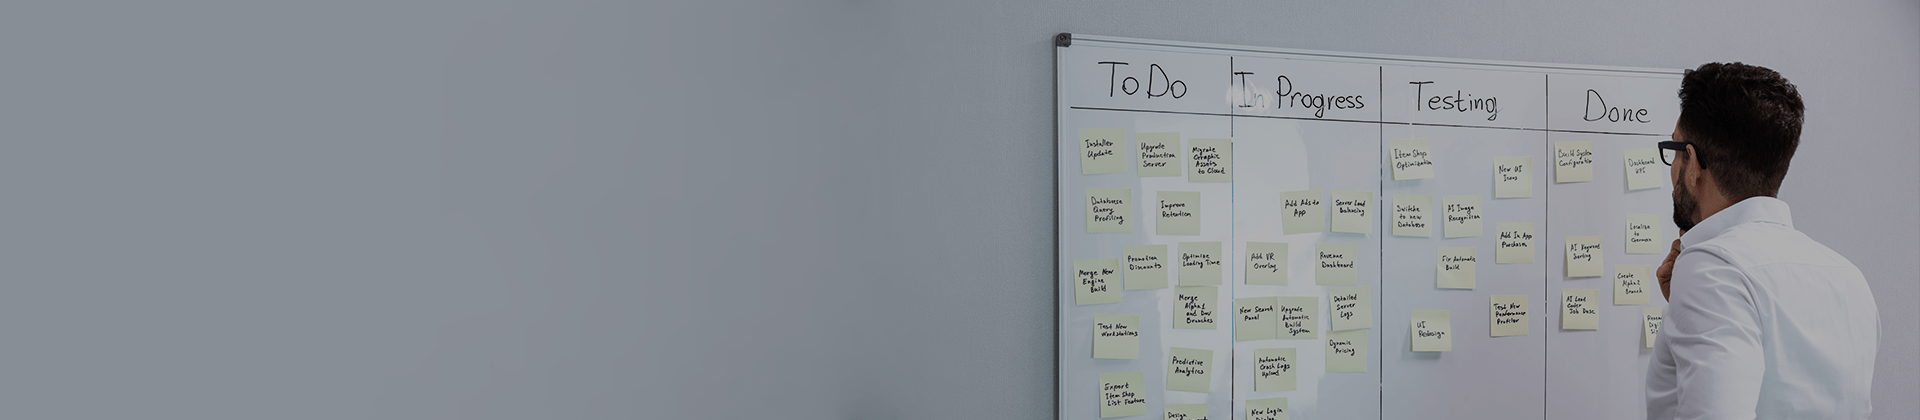 To Do
In Progress
Testing
Done
Installer
Update
Upgrade
Production
Server
Migrate
Graphic
Assets
to Cloud
Database
Query
Profiling
Improve
Retention
Merge New
Engine
Build
Promotion
Discounts
Optimize
Loading Time
Merge
Alpha1
and Dev
Branches
Test New
Workstations
Predictive
Analytics
Export
Item Shop
List Feature
Design
Add Ads to
App
Server Load
Balancing
Add VR
Overlay
Revenue
Dashboard
New Search
Panel
Upgrade
Automatic
Build
System
Detailed
Server
Logs
Dynamic
Pricing
Automatic
Crash Logs
Upload
New Login
Item Shop
Optimization
New UI
Icons
Switch
to new
Database
AI Image
Recognition
Add In App
Purchases
Fix Automatic
Build
UI
Redesign
Test New
Performance
Profiler
Build System
Configuration
Dashboard
Localize
to
German
AI Keyword
Sorting
Create
Alpha1
Branch
AI Lead
Coder
Job Desc